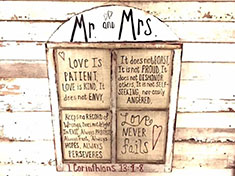 Mr. and Mrs.
LOVE IS
PATIENT,
LOVE IS KIND. IT
does not ENVY.
IT does not BOAST
It is not PROUD. It
DOES NOT DISHONOR
OTHERS. IT IS NOT SELF-
SEEKING, NOT easily
ANGERED.
Keeps no RECORD of
Wrongs. Does not delight
IN EVIL. Always PROTECTS
ALWAYS
HOPES, ALWAYS
PERSEVERES
Love
NEVER
fails
1 Corinthians 13:4-8